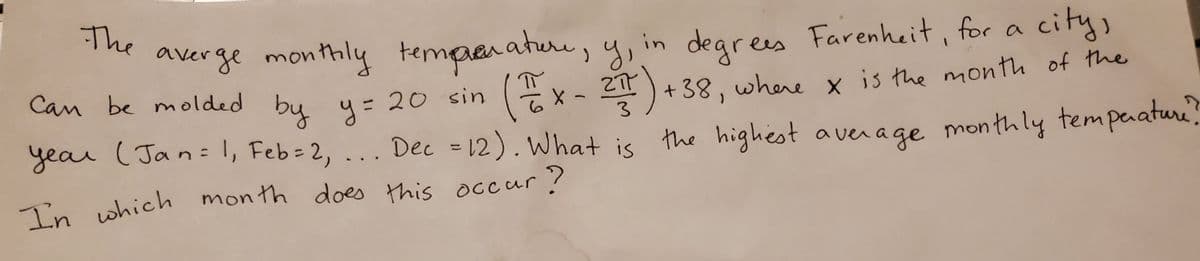 The averge monthly temperature, y, in degrees Farenheit, for a city,
Can be molded by y = 20 sin (π/6 x - 2π/3) + 38, where x is the month of the
year (Jan = 1, Feb = 2, ... Dec = 12). What is the highest average monthly temperature?
In which month does this occur?